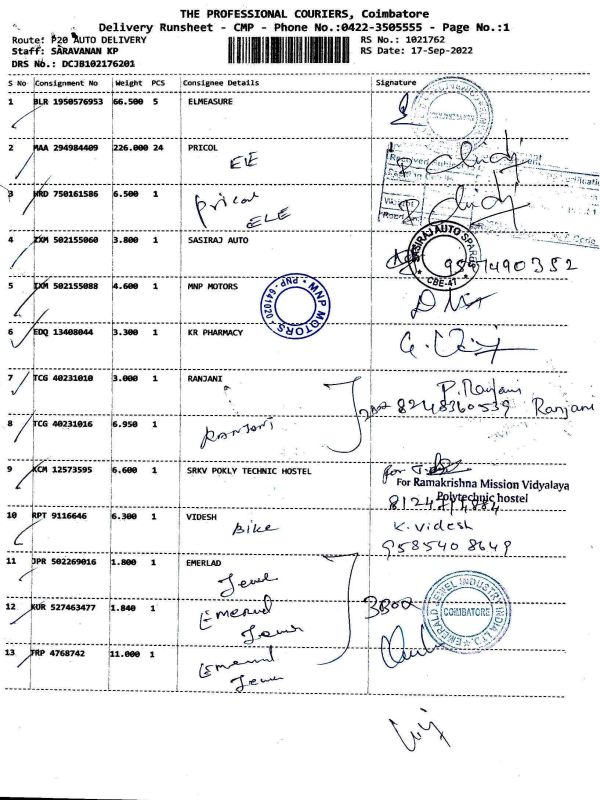 THE PROFESSIONAL COURIERS, Coimbatore
Delivery Runsheet - CMP - Phone No.:0422-3505555 - Page No.:1
Route: P20 AUTO DELIVERY RS No.: 1021762
Staff: SARAVANAN KP RS Date: 17-Sep-2022
DRS No.: DCJB102176201
S No Consignment No Weight PCS Consignee Details Signature
1 BLR 1950576953 66.500 5 ELMEASURE
2 MAA 294984409 226.000 24 PRICOL
ELE
3 HRD 750161586 6.500 1
Pricol
ELE
4 IXM 502155060 3.800 1 SASIRAJ AUTO
SASIRAJ AUTO SPARES
CBE-41
5 IXM 502155088 4.600 1 MNP MOTORS
MNP MOTORS
PNP - 641020
6 EDQ 13408044 3.300 1 KR PHARMACY
7 TCG 40231010 3.000 1 RANJANI
P. Ranjani
8248360539 Ranjani
8 TCG 40231016 6.950 1
RANJANI
9 KCM 12573595 6.600 1 SRKV POKLY TECHNIC HOSTEL
For Ramakrishna Mission Vidyalaya
Polytechnic hostel
10 RPT 9116646 6.300 1 VIDESH
Bike
K. Videsh
9585408649
11 JPR 502269016 1.800 1 EMERLAD
Jewel
12 KUR 527463477 1.840 1
Emerud
Jewel
3 Box
EMERALD JEWEL INDUSTRY INDIA LTD
COIMBATORE
13 TRP 4768742 11.000 1
Emerud
Jewel